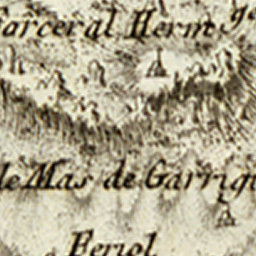 farceral Herm ge
le Mas de Garrigu
Feriol